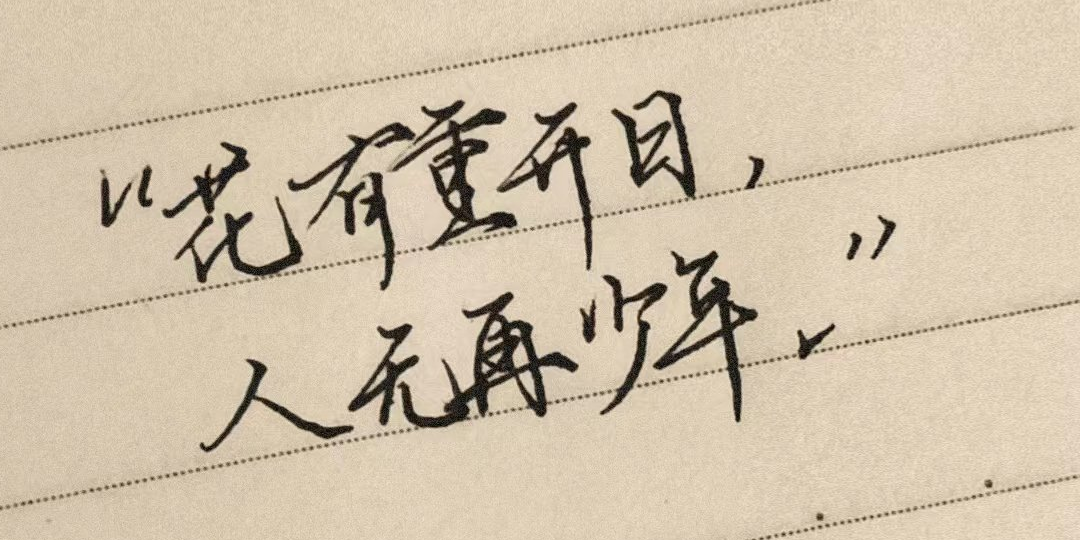 “花有重开日，
人无再少年.”